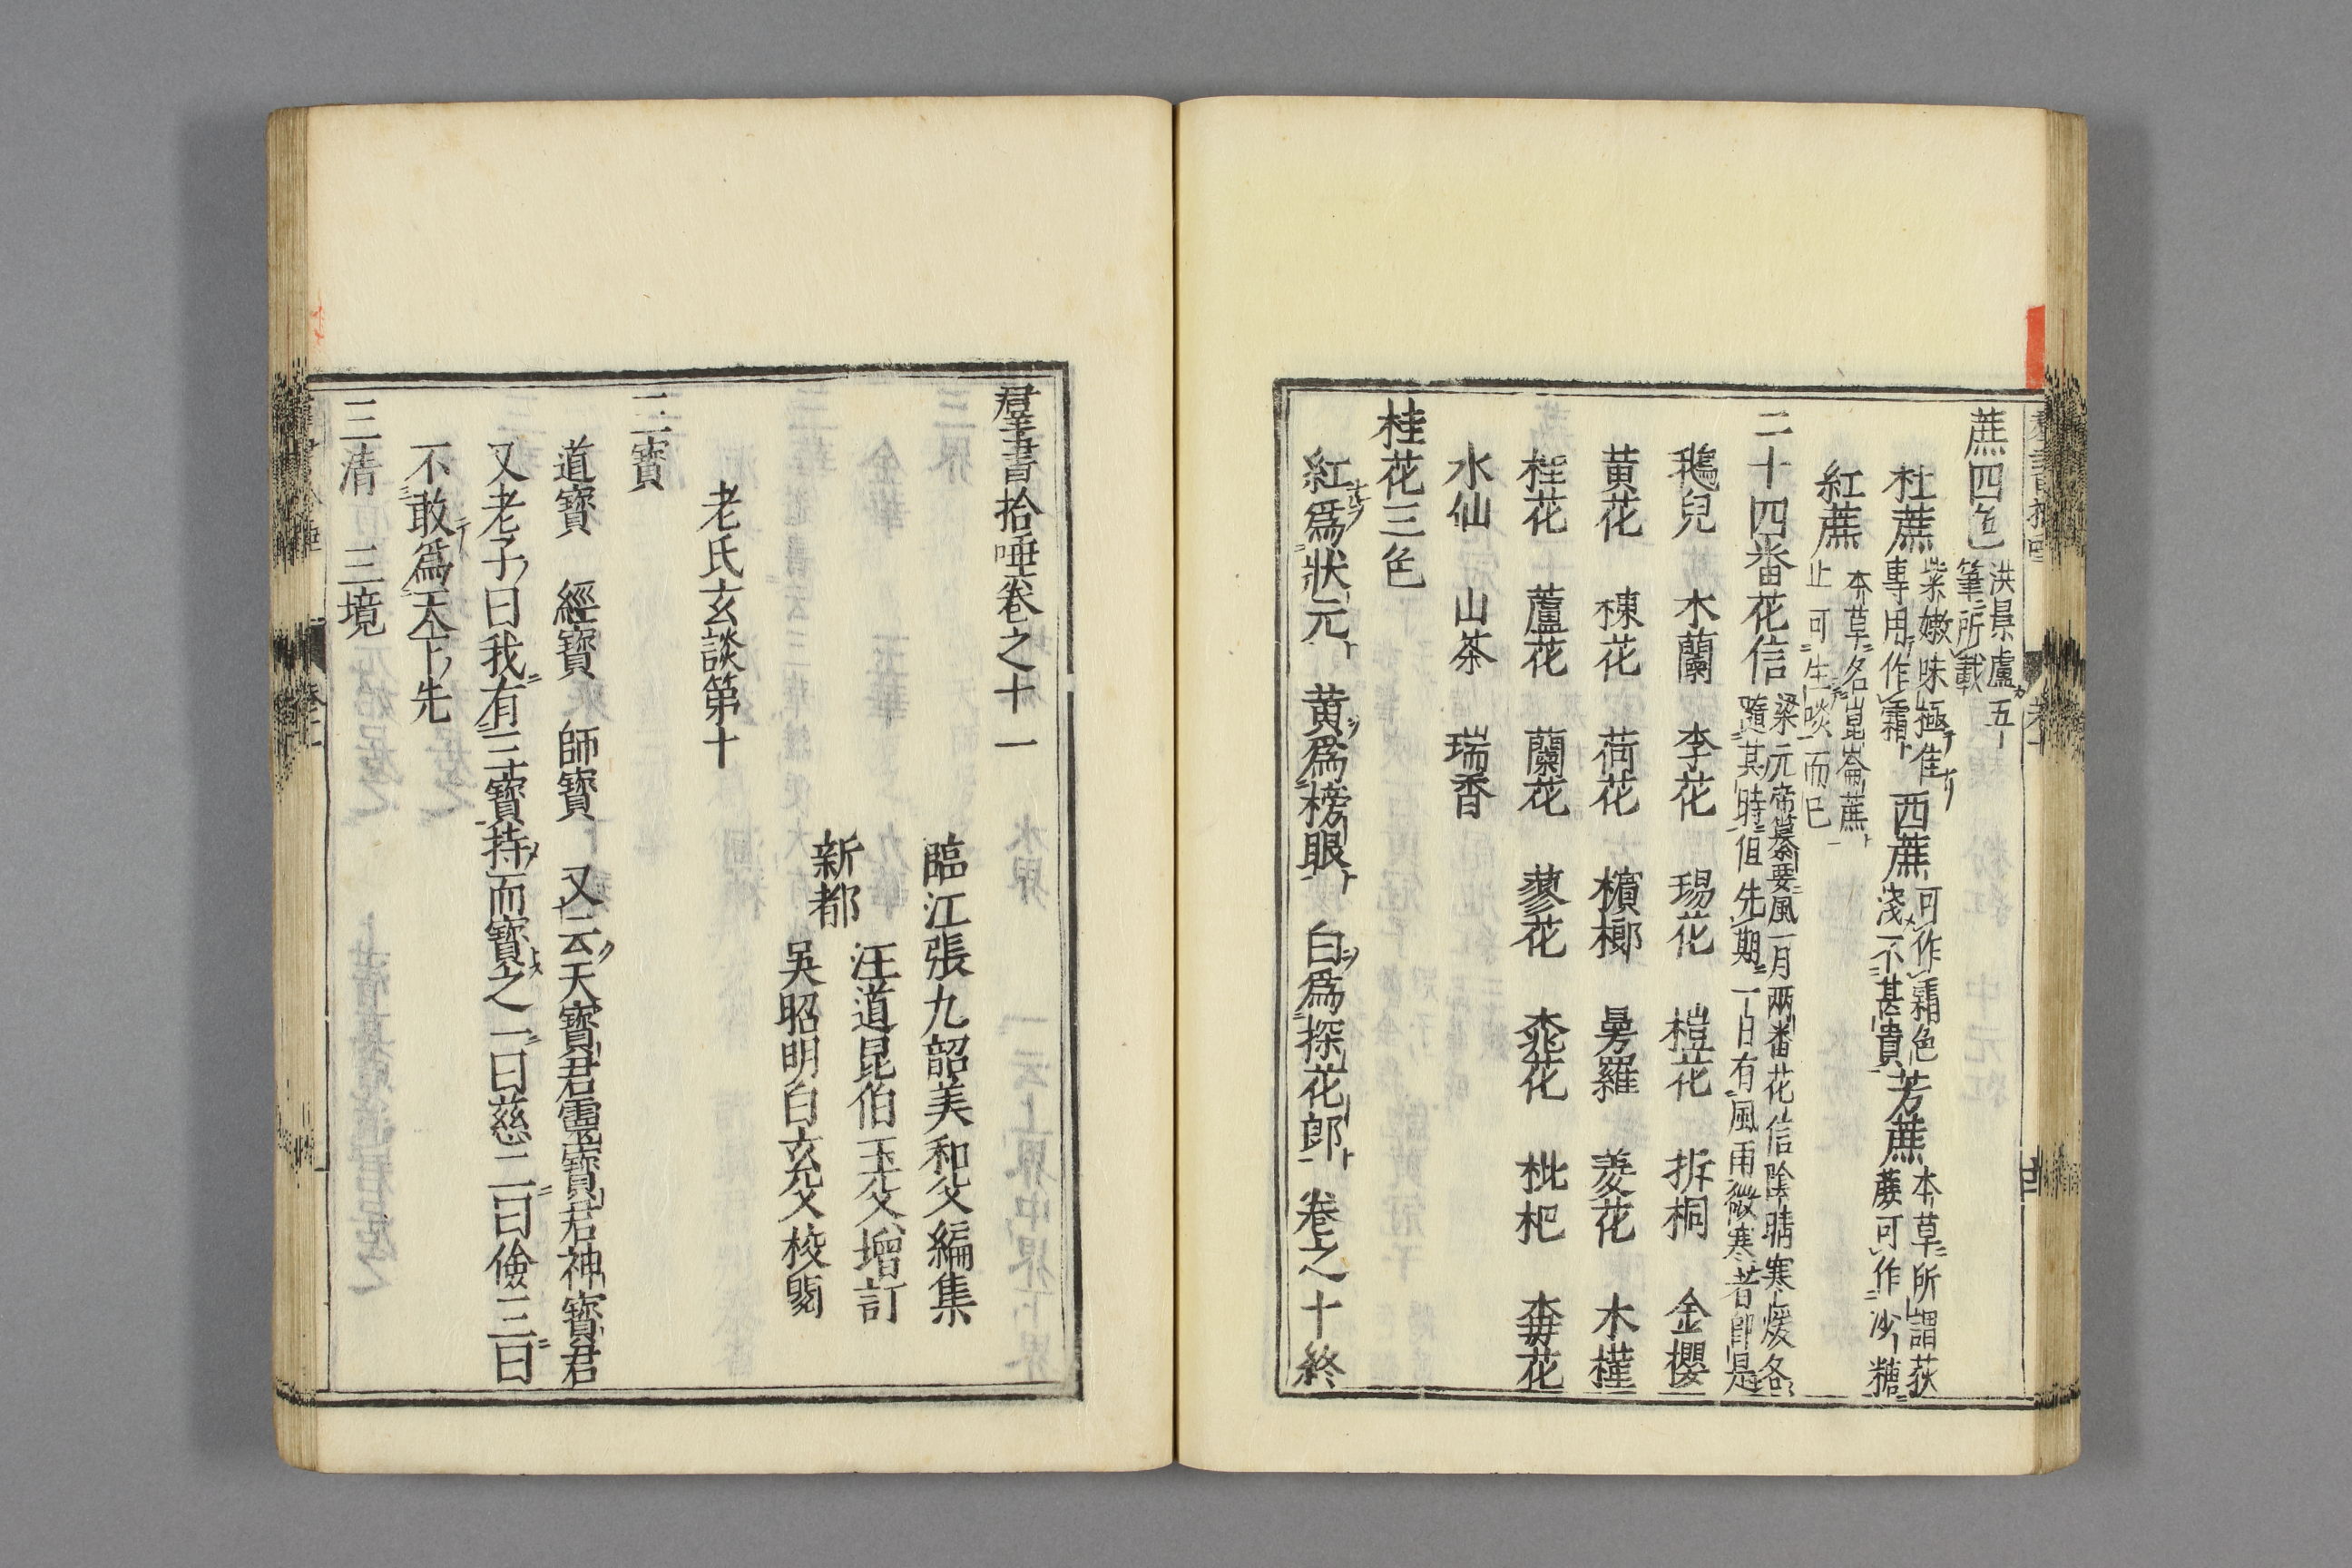 蔗四色 洪景盧五筆所載
杜蔗 紫嫩味極隹專用作霜 西蔗 可作霜色淺不甚貴 芳蔗 本草所謂荻蔗可作沙糖
紅蔗 本草名崑崙蔗止可生啖而已
二十四番花信 梁元帝纂要風一月兩番花信陰晴寒煖各隨其時但先期一日有風雨微寒者即是
鵝兒 木蘭 李花 瑒花 榿花 拆桐 金櫻
黃花 楝花 荷花 檳榔 㝵羅 菱花 木槿
桂花 蘆花 蘭花 蓼花 桃花 枇杷 梅花
水仙 山茶 瑞香
桂花三色
紅爲狀元 黃爲榜眼 白爲探花郎 卷之十終
羣書拾唾卷之十一
臨江張九韶美和父編集
新都 汪道昆伯玉父增訂
吳昭明白玄父校閱
老氏玄談第十
三寶
道寶 經寶 師寶 又云天寶君靈寶君神寶君
又老子曰我有三寶持而寶之一曰慈二曰儉三曰
不敢爲天下先
三清 三境